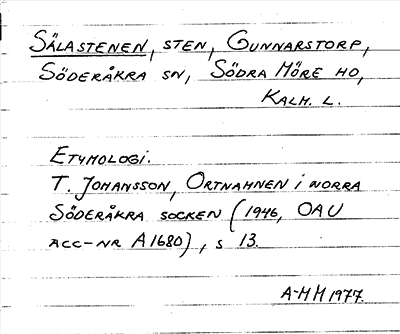 SÄLASTENEN, STEN, GUNNARSTORP,
SÖDERÅKRA SN, SÖDRA MÖRE HD,
KALM. L.
ETYMOLOGI.
T. JOHANSSON, ORTNAMNEN I NORRA
SÖDERÅKRA SOCKEN (1946, OAU
ACC-NR A1680), S 13.
A-MM 1977